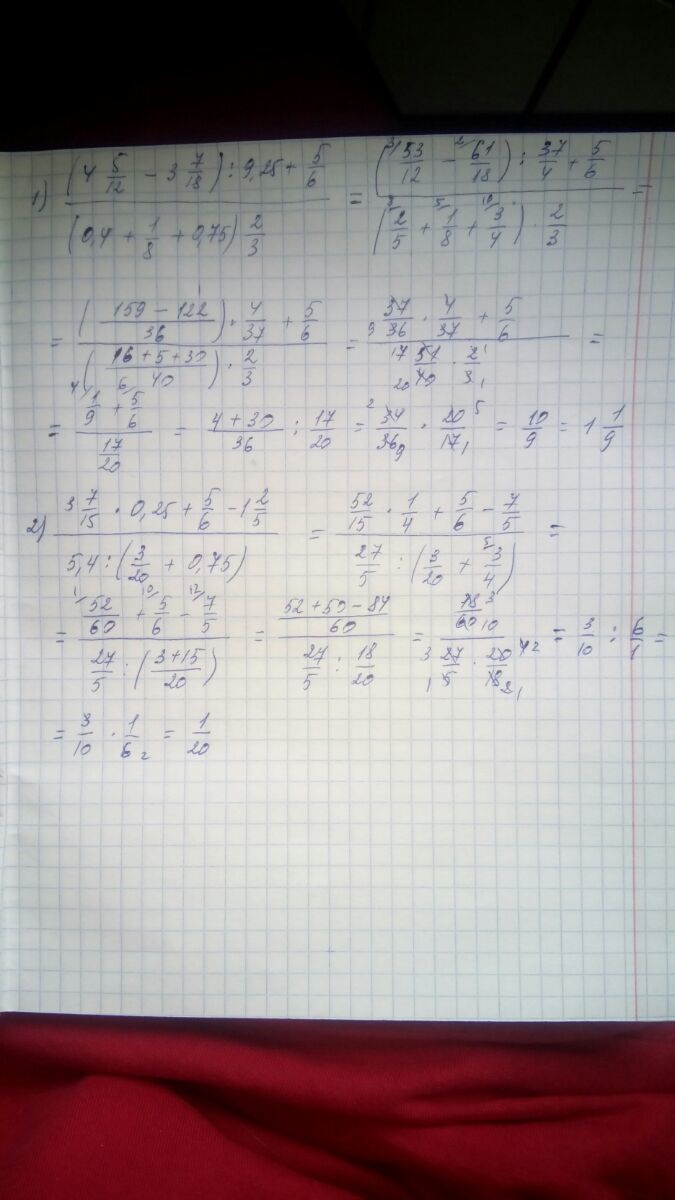 1) ((4 5/12 - 3 7/18) : 9,25 + 5/6) / ((0,4 + 1/8 + 0,75) 2/3) = ((3\ 53/12 - 2\ 61/18) : 37/4 + 5/6) / ((8\ 2/5 + 5\ 1/8 + 10\ 3/4) · 2/3) =
= (((159 - 122)/36) · 4/37 + 5/6) / (((16 + 5 + 30)/40) · 2/3) = (37/36 · 4/37 + 5/6) / (51/40 · 2/3) =
= (4\ 1/9 + 6\ 5/6) / (17/20) = (4 + 30)/36 : 17/20 = 34/36 · 20/17 = 10/9 = 1 1/9
2) (3 7/15 · 0,25 + 5/6 - 1 2/5) / (5,4 : (3/20 + 0,75)) = (52/15 · 1/4 + 5/6 - 7/5) / (27/5 : (3/20 + 5\ 3/4)) =
= (1\ 52/60 + 10\ 5/6 - 12\ 7/5) / (27/5 : ((3+15)/20)) = ((52 + 50 - 84)/60) / (27/5 : 18/20) = (18/60) / (27/5 · 20/18) = 3/10 : 6/1 =
= 3/10 · 1/6 = 1/20